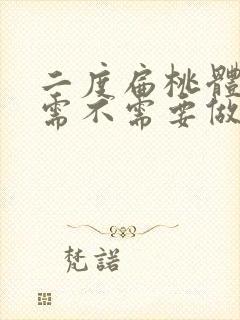 二度扁桃體
需不需要做
梵諾